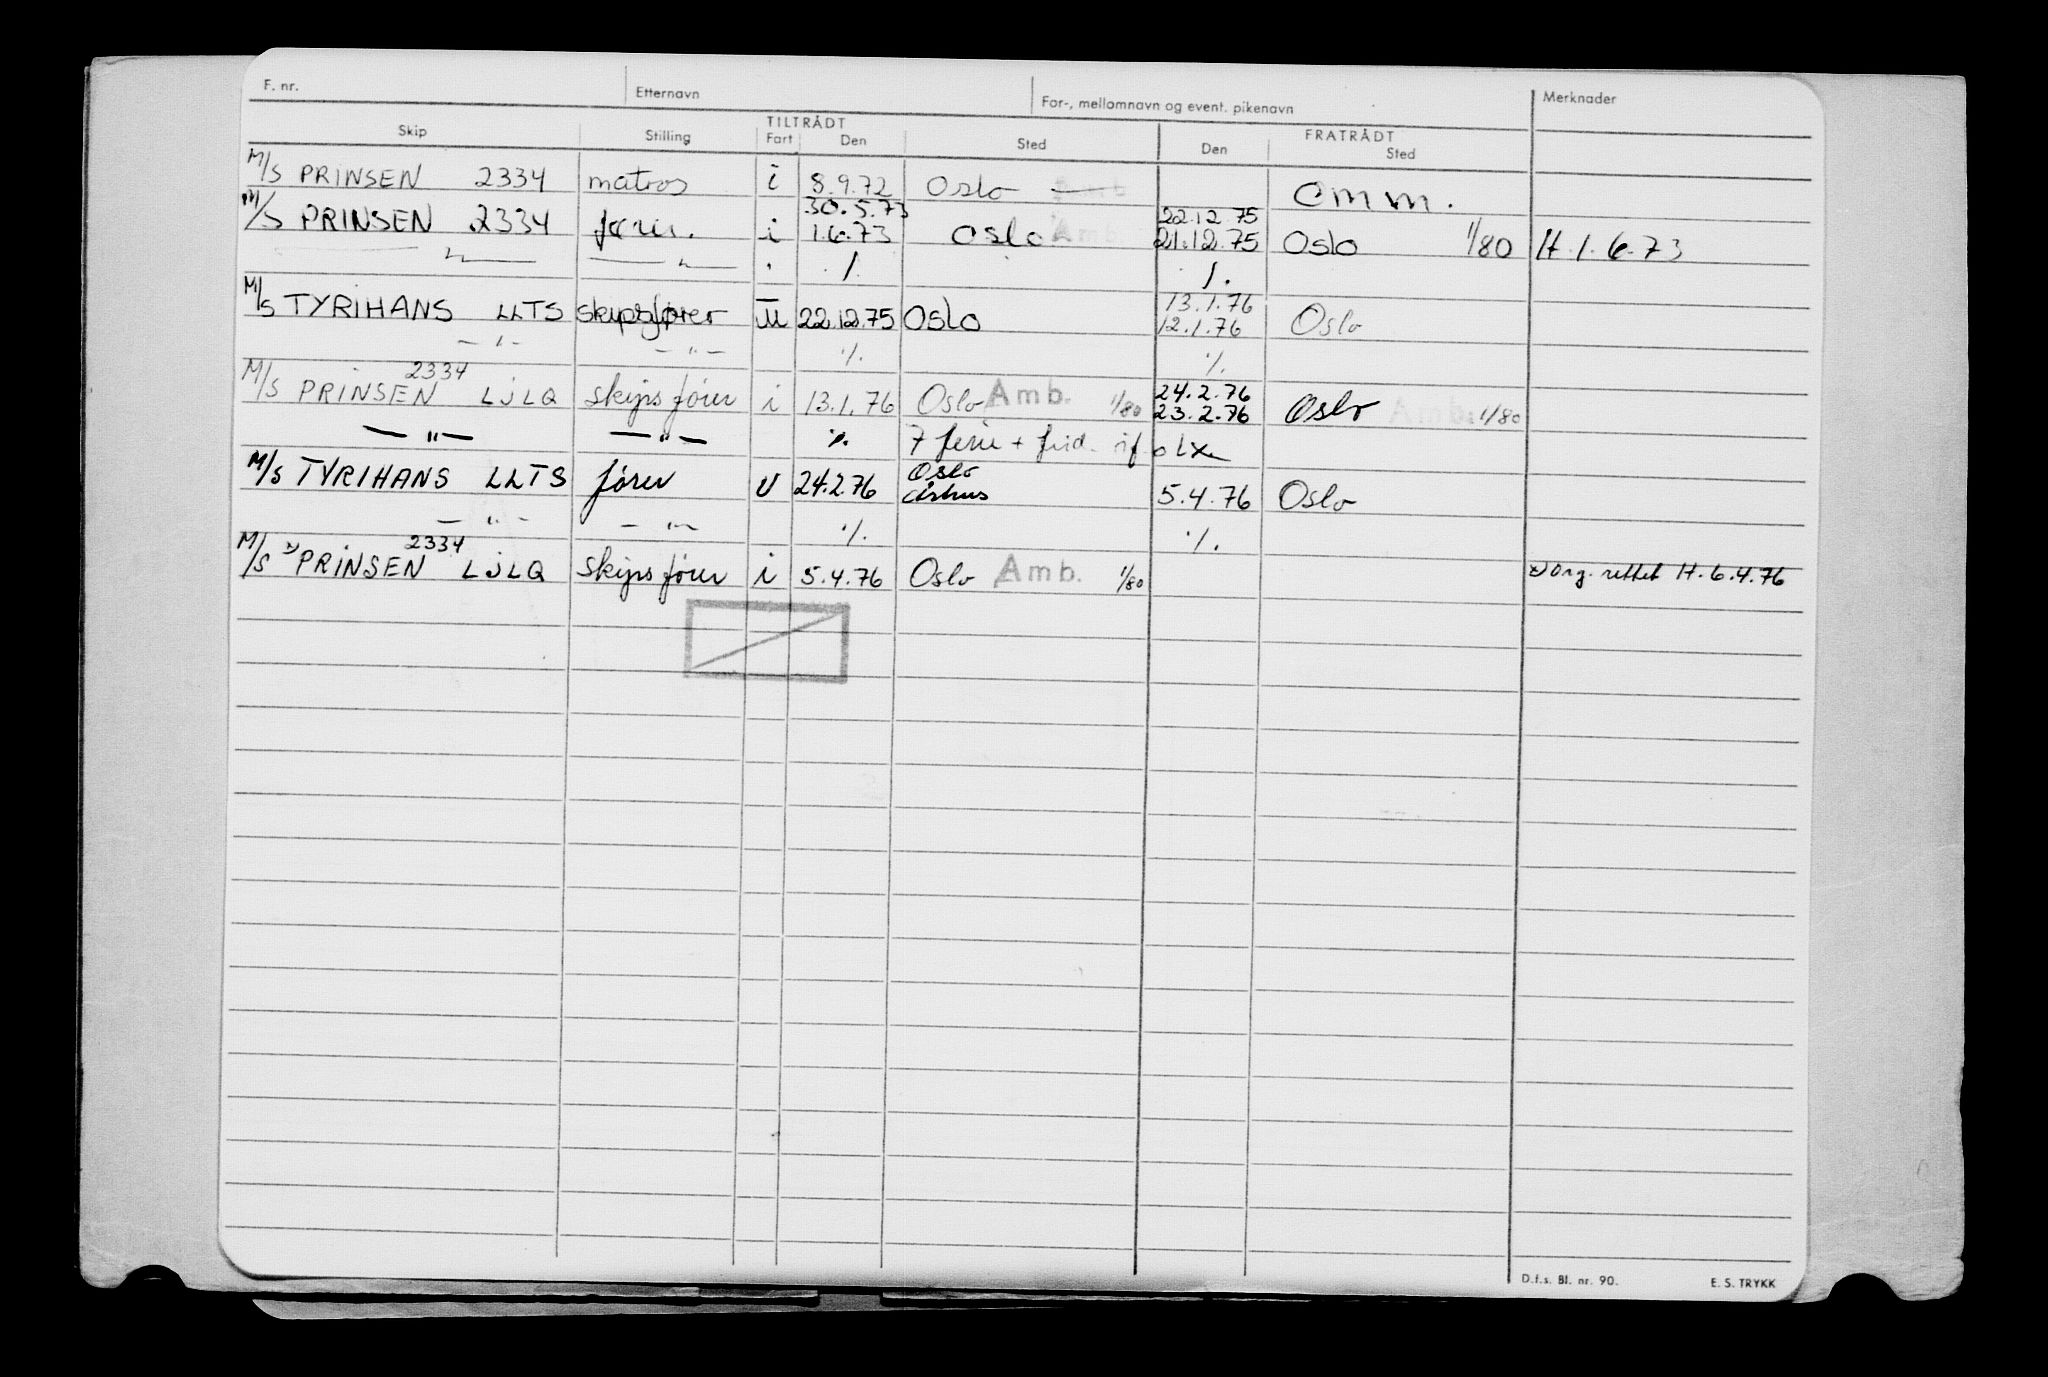 F. nr. Etternavn For-, mellomnavn og event. pikenavn Merknader
TILTRÅDT FRATRÅDT
Skip Stilling Fart Den Sted Den Sted
M/S PRINSEN 2334 matros i 8.9.72 Oslo Amb omm.
30.5.73 22.12.75
M/S PRINSEN 2334 fører. i 1.6.73 Oslo Amb. 21.12.75 Oslo 1/80 H. 1.6.73
— " — — " — . ./. ./.
13.1.76
M/S TYRIHANS LLTS skipsfører U 22.12.75 Oslo 12.1.76 Oslo
— " — — " — ./. ./.
2334 24.2.76
M/S PRINSEN LJLQ skipsfører i 13.1.76 Oslo Amb. 1/80 23.2.76 Oslo Amb. 1/80
— " — — " — ./. 7 ferie + frid.
Oslo
M/S TYRIHANS LLTS fører U 24.2.76 Århus 5.4.76 Oslo
— " — — " — ./. ./.
2334
M/S PRINSEN LJLQ skipsfører i 5.4.76 Oslo Amb. 1/80 org. rettet H. 6.4.76
D.f.s. Bl. nr. 90. E. S. TRYKK